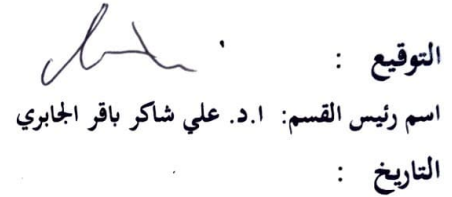 التوقيع :
اسم رئيس القسم: ا.د. علي شاكر باقر الجابري
التاريخ :